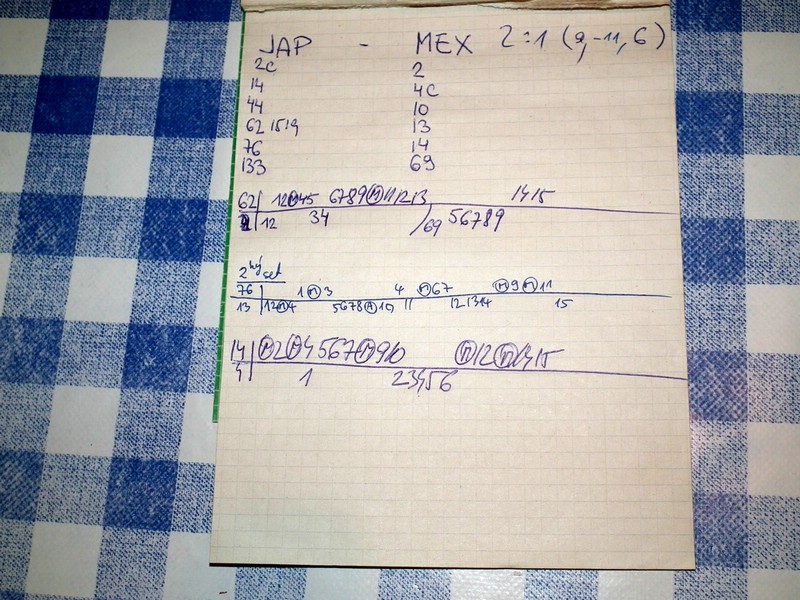 JAP - MEX 2:1 (9,-11,6)
2C 2
14 4C
44 10
62 1519 13
76 14
133 69
62 12Ⓜ45 6789Ⓜ111213 1415
2 12 34 /69 56789
2hý set
76 1Ⓜ3 4 Ⓜ67 Ⓜ9Ⓜ11
13 12Ⓜ4 5678Ⓐ10 11 121314 15
14 Ⓜ2Ⓜ4567Ⓜ910 Ⓜ12Ⓜ1415
4 1 23456